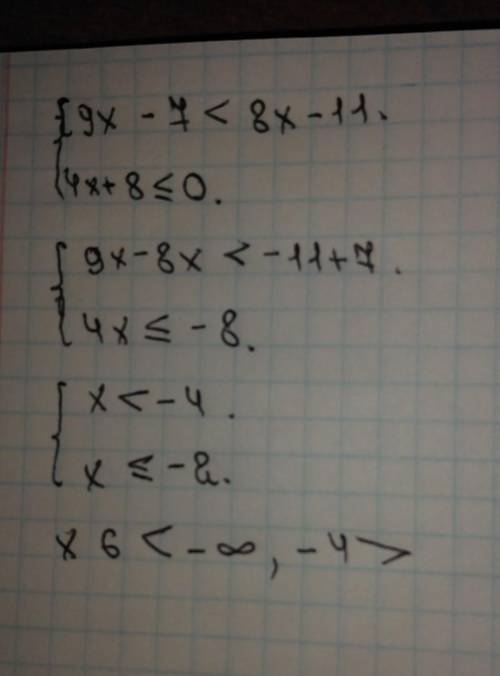 {9x - 7 < 8x - 11.
4x + 8 ≤ 0.
{9x - 8x < -11 + 7.
4x ≤ -8.
{x < -4.
x ≤ -2.
x ϵ < -∞, -4 >